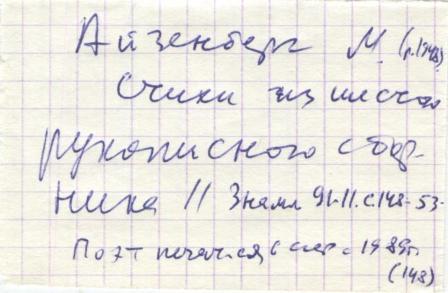 Айзенберг М. (р.1948)
Стихи из шестого
рукописного сбор-
ника // Знамя 91-11. с.148-53-
Поэт печатался с 1989г.
(148)